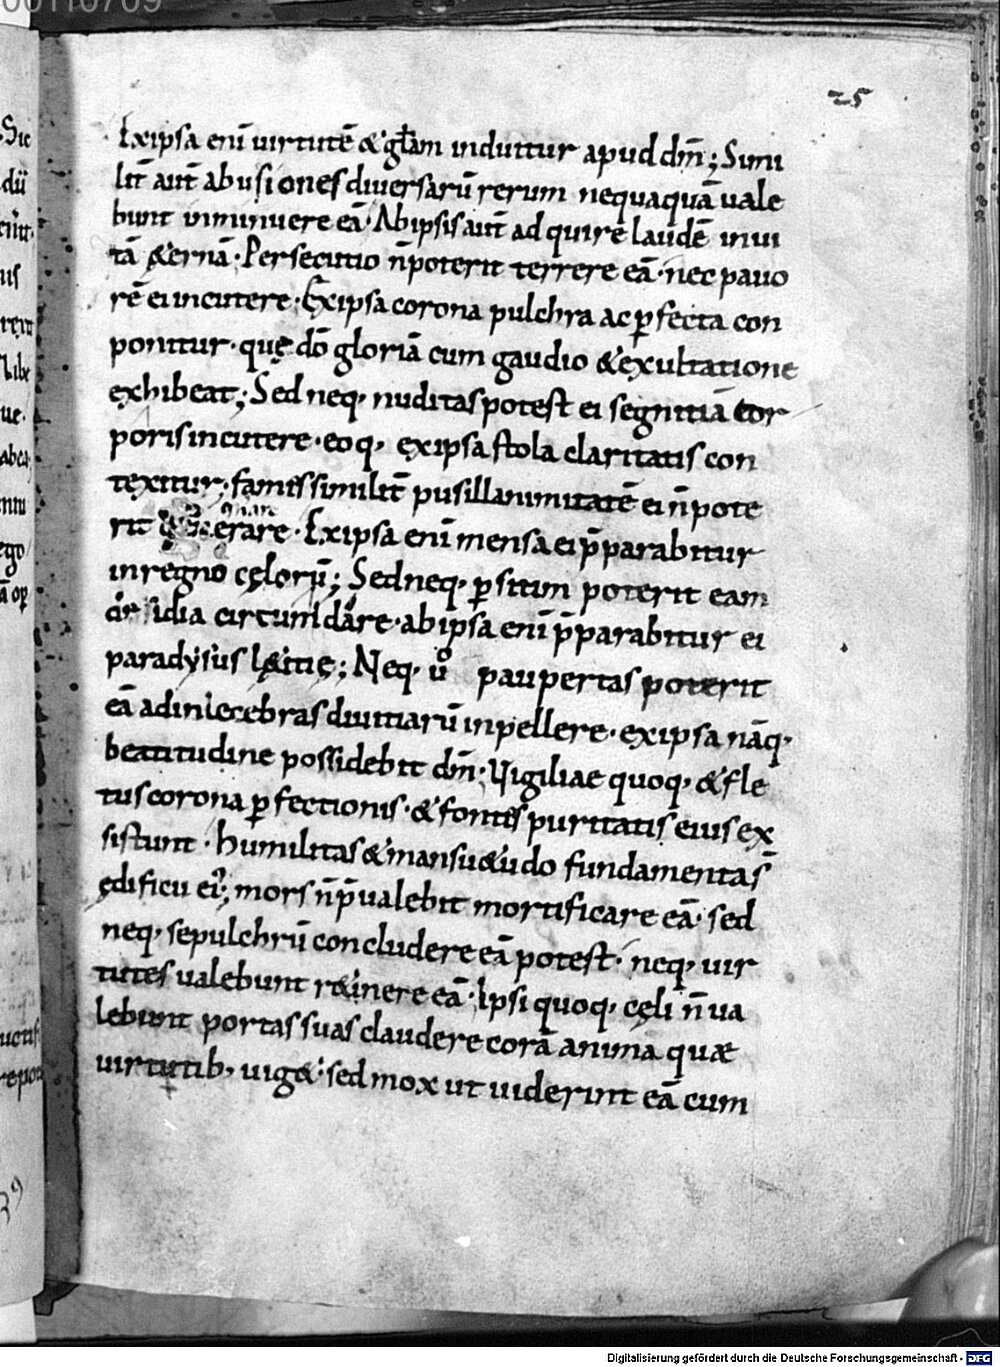 00110709
25
Exipsa enī uirtutē & gl̄am induitur apud dm̄; Simi
lit̄ aut̄ abusiones diuersarū rerum nequaquā uale
bunt inminuere eā. Abipsis aut̄ adquirē laudē inui
tā &ernā. Persecutio n̄ poterit terrere eā. nec pauo
rē ei incutere. Exipsa corona pulchra ac ꝑfecta con
ponitur. quę dō gloriā cum gaudio & exultatione
exhibeat; Sed neq· nuditas potest ei segnitiā cor
poris incutere. eoq· exipsa stola claritatis con
texitur; famis similit̄ pusillanimitatē ei n̄ pote
rit erare. Exipsa enī mensa ei p̄parabitur
in regno cęlorū; Sed neq· ꝑ sitim poterit eam
circumdare. ab ipsa enī p̄parabitur ei
paradysus l&itię; Neq· ů paupertas poterit
eā ad inlecebras diuitiarū inpellere. exipsa nāq·
beatitudine possidebit dm̄. Vigiliae quoq· & fle
tus corona ꝑfectionis. & fontes puritatis eius ex
sistunt. humilitas & mansu&udo fundamentas̄
ędificii ei'; mors n̄ p̄ualebit mortificare eā. sed
neq· sepulchrū concludere eā potest. neq· uir
tutes ualebunt r&inere eā. Ipsi quoq· cęli n̄ ua
lebunt portas suas claudere corā anima quae
uirtutib· uig&. sed mox ut uiderint eā cum
Digitalisierung gefördert durch die Deutsche Forschungsgemeinschaft - DFG